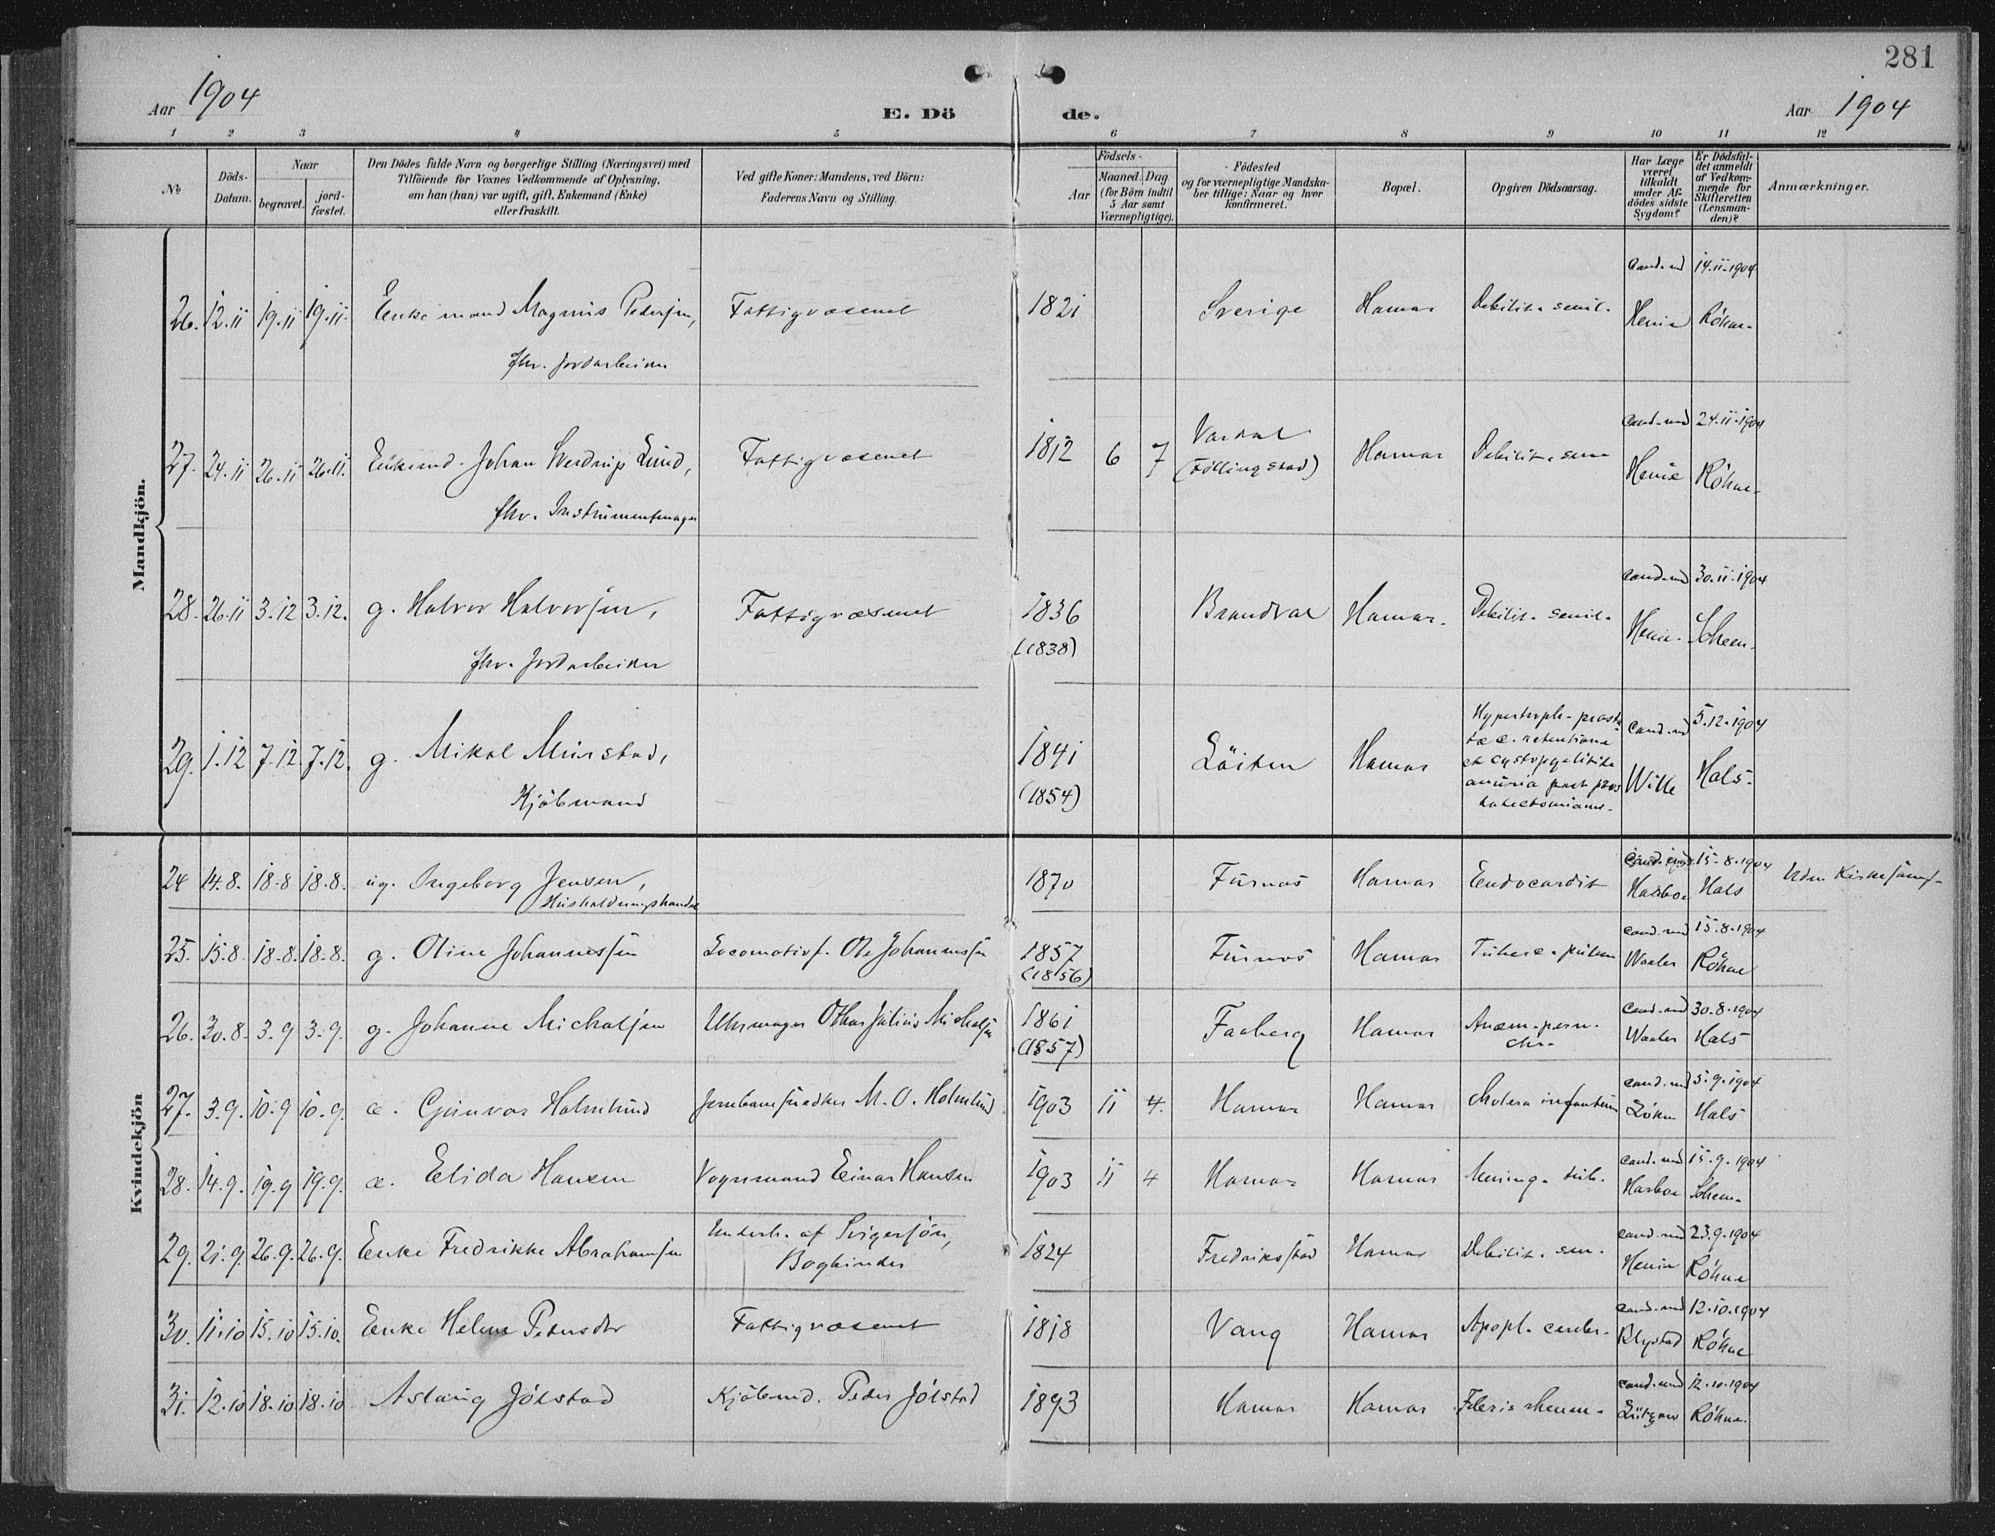 281
Aar 1904
E. Dö de.
Aar 1904
1 2 3 4 5 6 7 8 9 10 11 12
No
Döds-Datum.
Naar
begravet.
jord-fæstet.
Den Dödes fulde Navn og borgerlige Stilling (Næringsvei) med
Tilföiende for Voxnes Vedkommende af Oplysning,
om han (hun) var ugift, gift, Enkemand (Enke)
eller fraskilt.
Ved gifte Koner: Mandens, ved Börn:
Faderens Navn og Stilling.
Födsels-
Aar
Maaned. Dag
(for Börn indtil
5 Aar samt
Værnepligtige).
Födested
og for værnepligtige Mandska-
ber tillige: Naar og hvor
konfirmeret.
Bopæl.
Opgiven Dödsaarsag.
Har Læge
været
tilkaldt
under Af-
dödes sidste
Sygdom?
Er Dödsfal-
det anmeldt
af Vedkom-
mende for
Skifteretten
(Lensman-
den)?
Anmærkninger.
Mandkjön.
26. 12.11 19.11 19.11. Enkemand Magnus Pedersen, Fattigvæsenet 1821 Sverige Hamar Debilit. senil. cand. md 14.11.1904
fhv. Jordarbeider Röhne.
27. 24.11 26.11 26.11. Enkemd. Johan Sverdrup Lund, Fattigvæsenet 1812 6 7 Vardal Hamar Debilit. sen cand. md 24.11.1904
(Föllingstad) Röhne.
fhv. Instrumentmager
28. 26.11 3.12 3.12. g. Halvor Halvorsen, Fattigvæsenet 1836 Brandval Hamar. Debilit. senil. cand. md 30.11.1904
(1838)
fhv. Jordarbeider
29. 1.12 7.12. 7.12. g. Mikal Murstad, 1841 Löiten Hamar cand. md 5.12.1904
Kjöbmand (1854) Wille Hals
Hypertroph. prosta
tæ c. retentione
et cystopyelitide
anuria post pros
tatectomiam.
Kvindekjön
24 14.8. 18.8 18.8. ug. Ingeborg Jensen, 1870 Furnes Hamar Endocardit 15.8.1904 Uden Kirkesang
Harboe Hals
25. 15.8. 18.8. 18.8. g. Oline Johannessen Locomotivf. Ole Johannessen 1857 Furnes Hamar Tuberc. pulm cand. md 15.8.1904
(1856) Waaler Röhne
26. 30.8. 3.9 3.9. g. Johanne Michalsen Uhrmager Othar Julius Michalsen 1861 Faaberg Hamar Anæm. pern. cand. md 30.8.1904
(1857) chr. Waaler Hals
27. 3.9. 10.9 10.9. æ. Gunvor Holmlund M. O. Holmlund 1903 11 4. Hamar Hamar Cholera infantum cand. md 5.9.1904
Hals
28. 14.9. 19.9 19.9. æ. Elida Hansen Vognmand Einar Hansen 1903 11 4 Hamar Hamar Mening. tub. cand. md 15.9.1904
Harboe
29. 21.9. 26.9. 26.9. Enke Fredrikke Abrahamsen Underh. af Svigersön, 1824 Fredrikstad Hamar Debilit. sen. cand. md 23.9.1904
Bogbinder Röhne
30. 11.10 15.10 15.10. Enke Helene Pedersdtr Fattigvæsenet 1818 Vang Hamar Apopl. cerebr. cand. md 12.10.1904
Röhne
31. 12.10 18.10 18.10 Aslaug Jölstad Kjöbmd. Peder Jölstad 1893 Hamar Hamar cand. md 12.10.1904
Röhne.